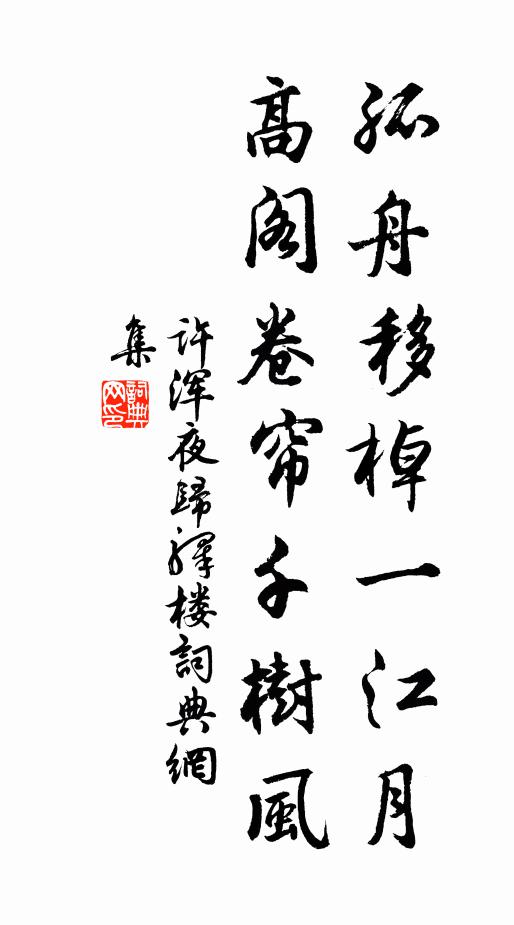 孤舟移棹一江月
高阁卷帘千樹風
许浑夜歸驛楼詞典網
集
詞典网印